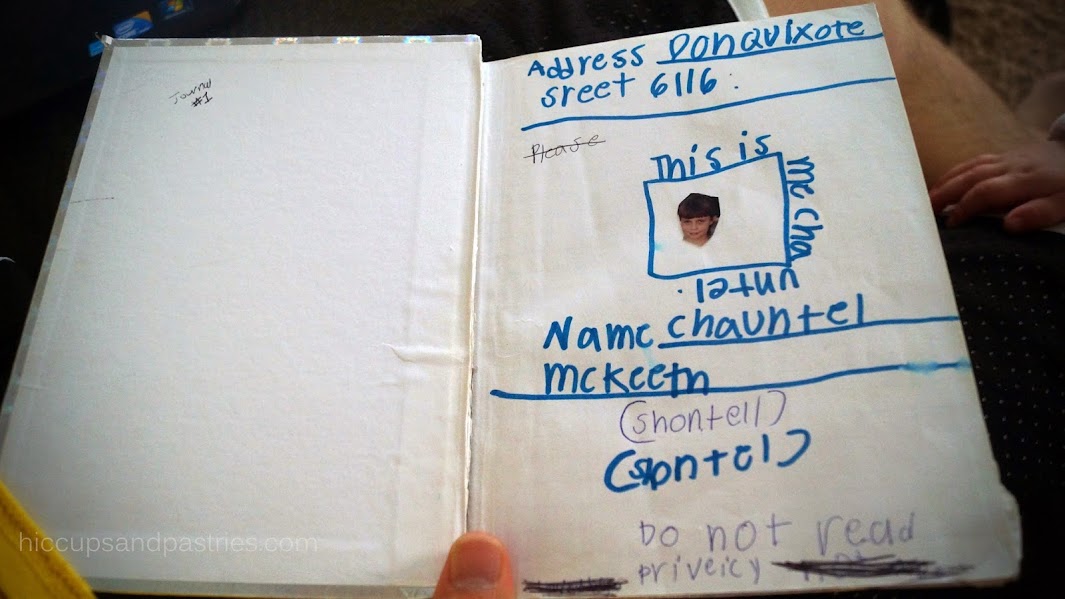 Journal
#1
Address DonQuixote
sreet 6116.
Please
This is
me cha
untel.
Name chauntel
mckeeth
(shontell)
(shontel)
Do not read
priveicy
hiccupsandpastries.com